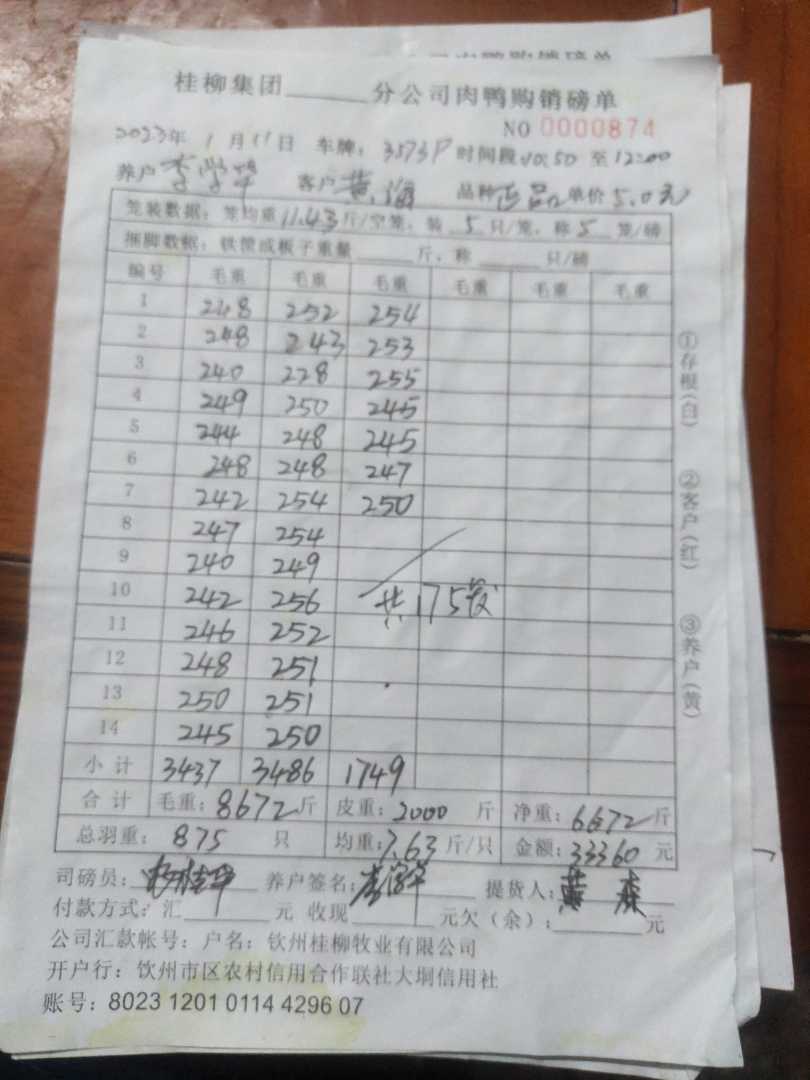 桂柳集团______分公司肉鸭购销磅单
NO 0000874
2023年 1 月 11 日 车牌: 3573P 时间段 10:50 至 12:00
养户 李学华 客户 黄海 品种 正品 单价 5.0元
笼装数据: 笼均重 11.43 斤/空笼, 装 5 只/笼, 称 5 笼/磅
捆脚数据: 铁筐或板子重量______斤, 称______只/磅
编号 毛重 毛重 毛重 毛重 毛重 毛重
1 248 252 254
2 248 243 253
3 240 228 255
4 249 250 245
5 244 248 245
6 248 248 247
7 242 254 250
8 247 254
9 240 249
10 242 256 共175笼
11 246 252
12 248 251
13 250 251
14 245 250
小计 3437 3486 1749
合计 毛重: 8672 斤 皮重: 2000 斤 净重: 6672 斤
总羽重: 875 只 均重: 7.63 斤/只 金额: 33360 元
司磅员: 养户签名: 李学华 提货人: 黄
付款方式: 汇______元 收现______元欠(余):______元
公司汇款帐号: 户名: 钦州桂柳牧业有限公司
开户行: 钦州市区农村信用合作联社大垌信用社
账号: 8023 1201 0114 4296 07
①存根(白) ②客户(红) ③养户(黄)
分公司肉鸭购销磅单